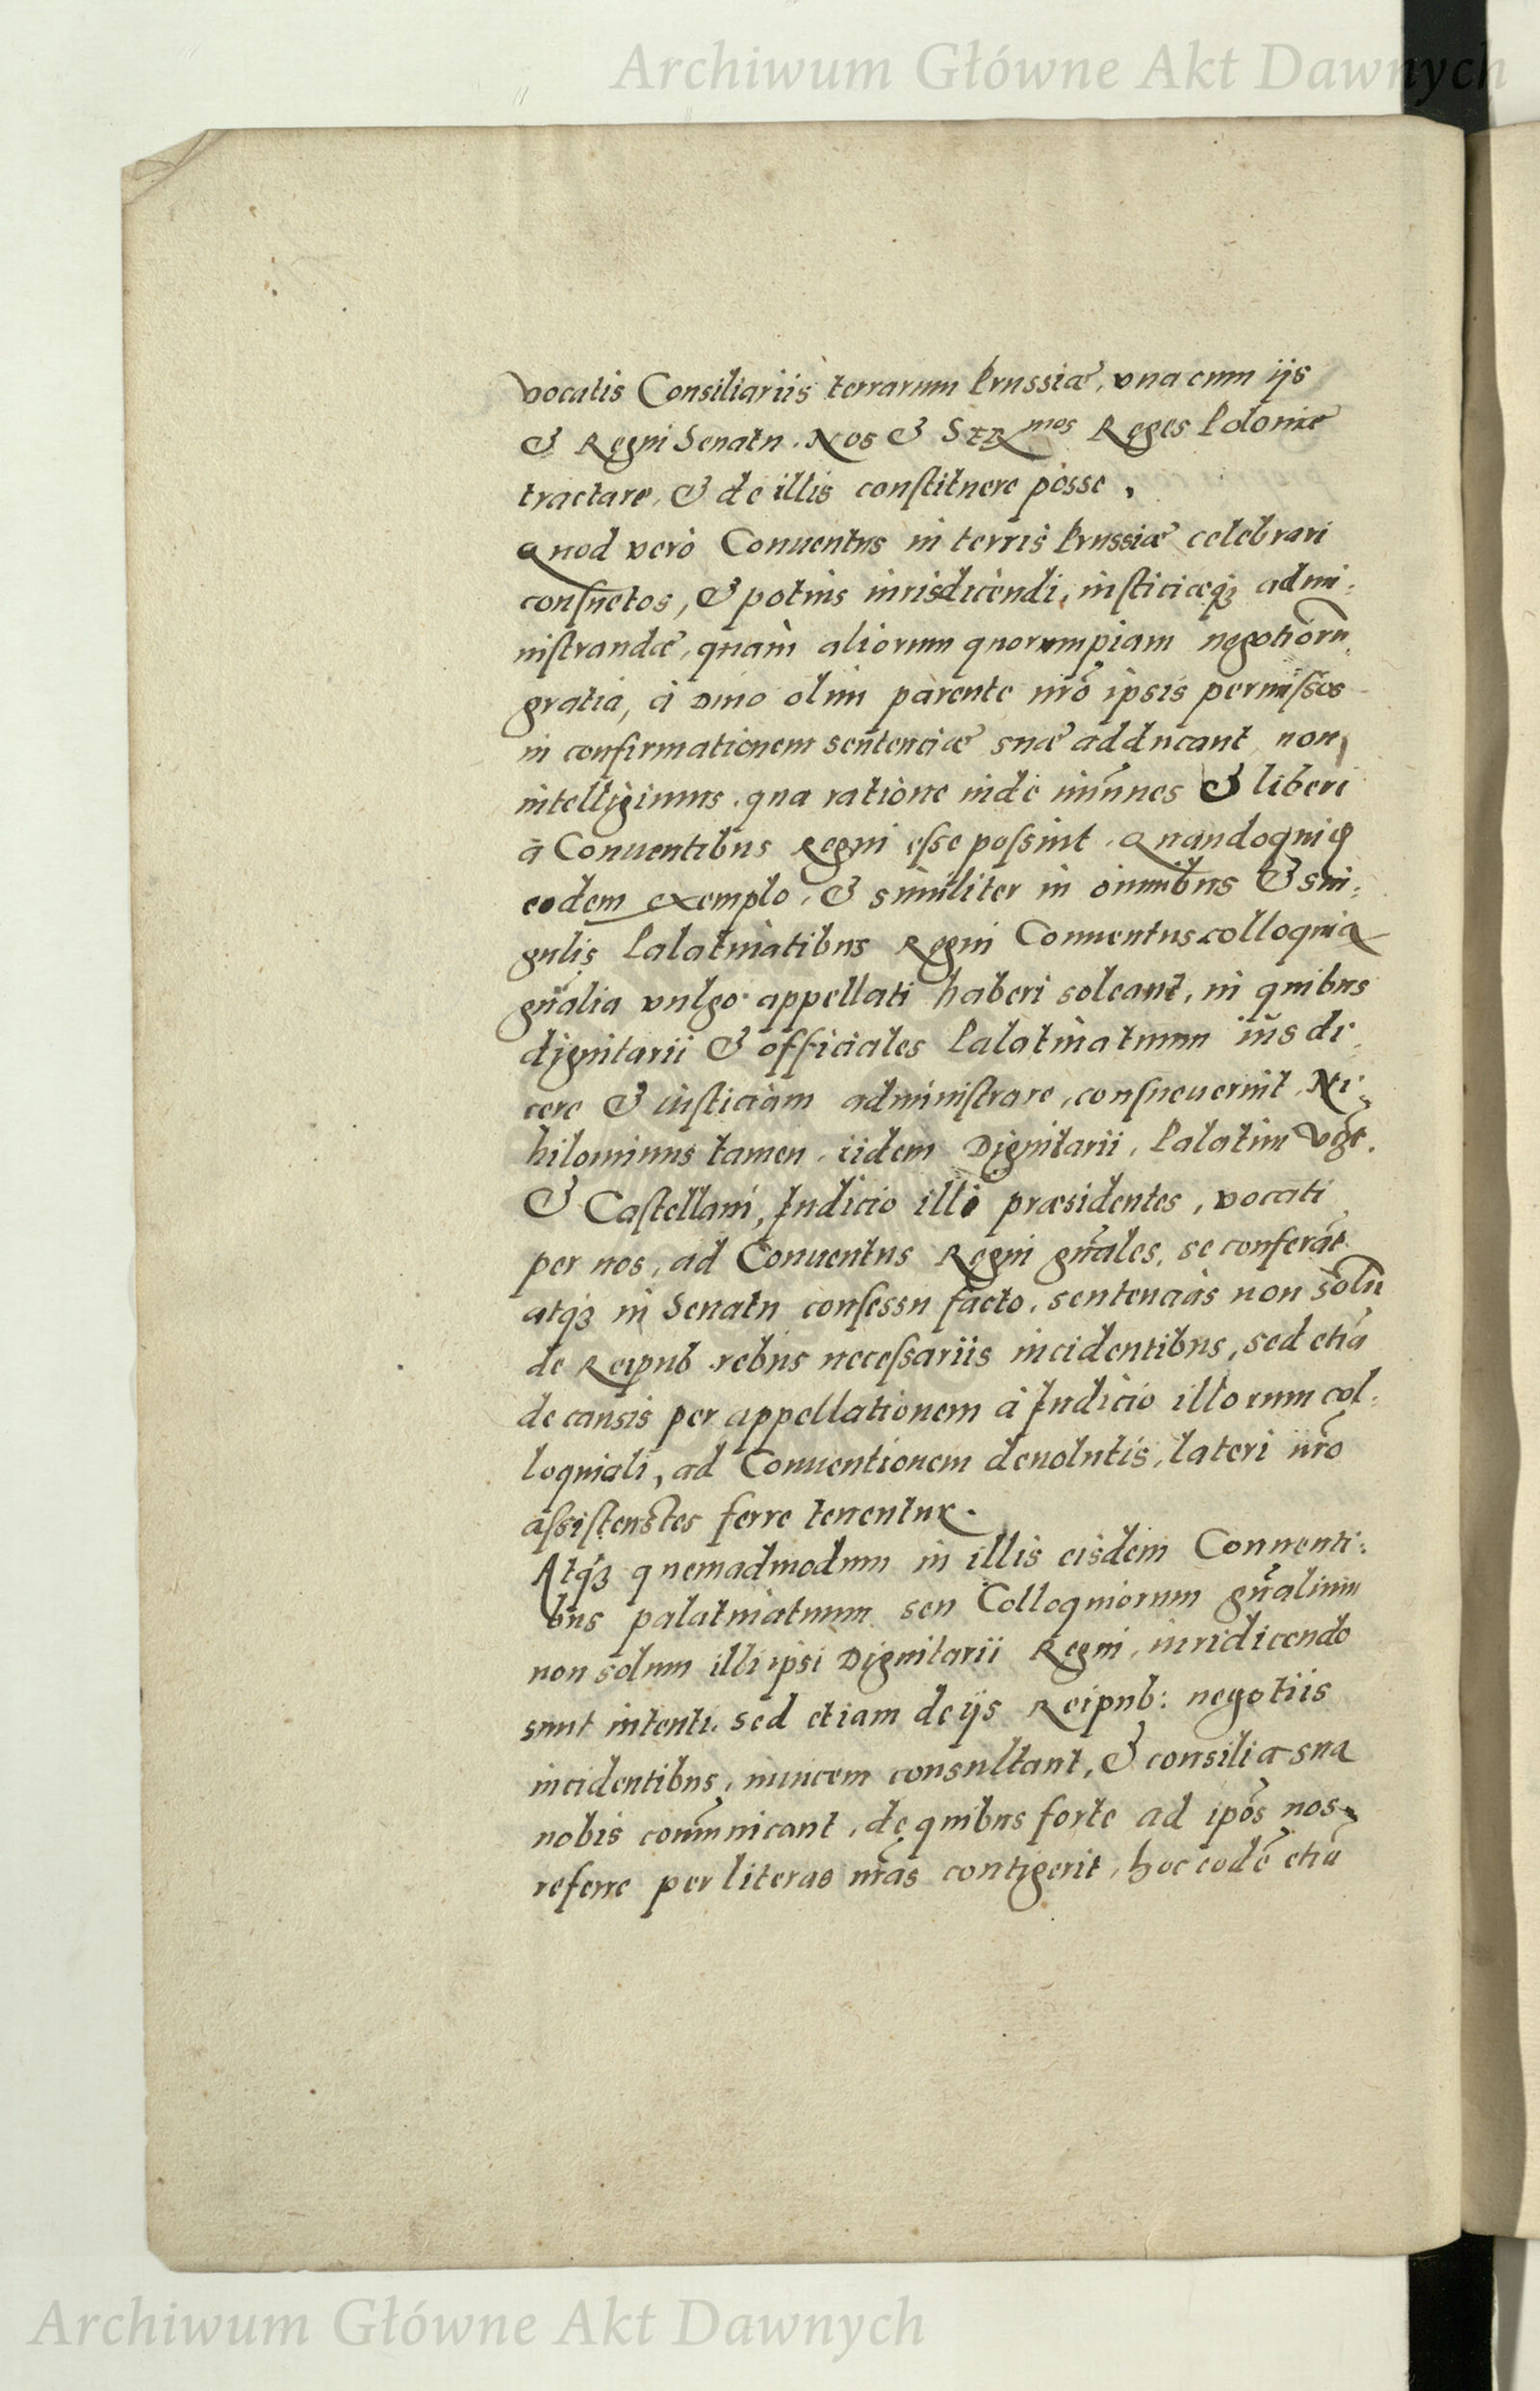 Archiwum Główne Akt Dawnych
vocatis Consiliariis terrarum Prussiæ, vna cum ijs
& Regni Senatu. Nos & SERmos Reges Poloniæ
tractare, & de illis constituere posse,
Quod verò Conuentus in terris Prussiæ celebrari
consuetos, & potius iurisdicendi, iusticiæq₃ admi:
nistrandæ, quàm aliorum quorumpiam negotiorū,
gratia, à Diuo olim parente nr̄o ipsis permissos
in confirmationem sentenciæ suæ adducant, non
intelligimus, qua ratione inde im̄unes & liberi
à Conuentibus Regni esse possint, Quandoquidẽ
eodem exemplo, & similiter in omnibus & sin:
gulis Palatinatibus Regni Conuentus colloquia
gñalia vulgo appellati haberi soleant, in quibus
dignitarii & officiales Palatinatuum ius di:
cere & iusticiam administrare, consueuerint, Ni:
hilominus tamen, iidem Dignitarii, Palatini vẟt.
& Castellani, Iudicio illi præsidentes, vocati
per nos, ad Conuentus Regni gñales, se conferāt
atq₃ in Senatu consessu facto, sentencias non solū
de Reipub rebus necessariis incidentibus, sed etiā
de causis per appellationem à Iudicio illorum col:
loquiali, ad Conuentionem deuolutis, lateri nr̄o
assistentes ferre tenentur.
Atq₃ quemadmodum in illis eisdem Conuenti:
bus palatinatuum seu Colloquiorum gñalium
non solum illi ipsi Dignitarii Regni, iuridicendo
sunt intenti, sed etiam de ijs Reipub: negotiis
incidentibus, inuicem consultant, & consilia sua
nobis com̄unicant, de quibus forte ad ipōs nos
referre per literas nr̄as contigerit, hoc eodē etiā
Archiwum Główne Akt Dawnych